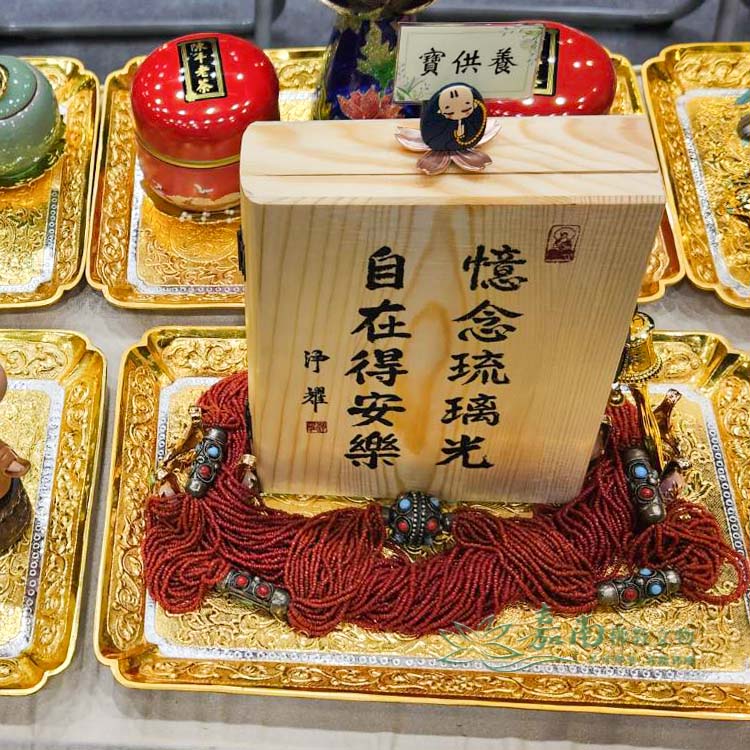 陳年老茶
寶供養
憶念琉璃光
自在得安樂
淨耀
嘉南